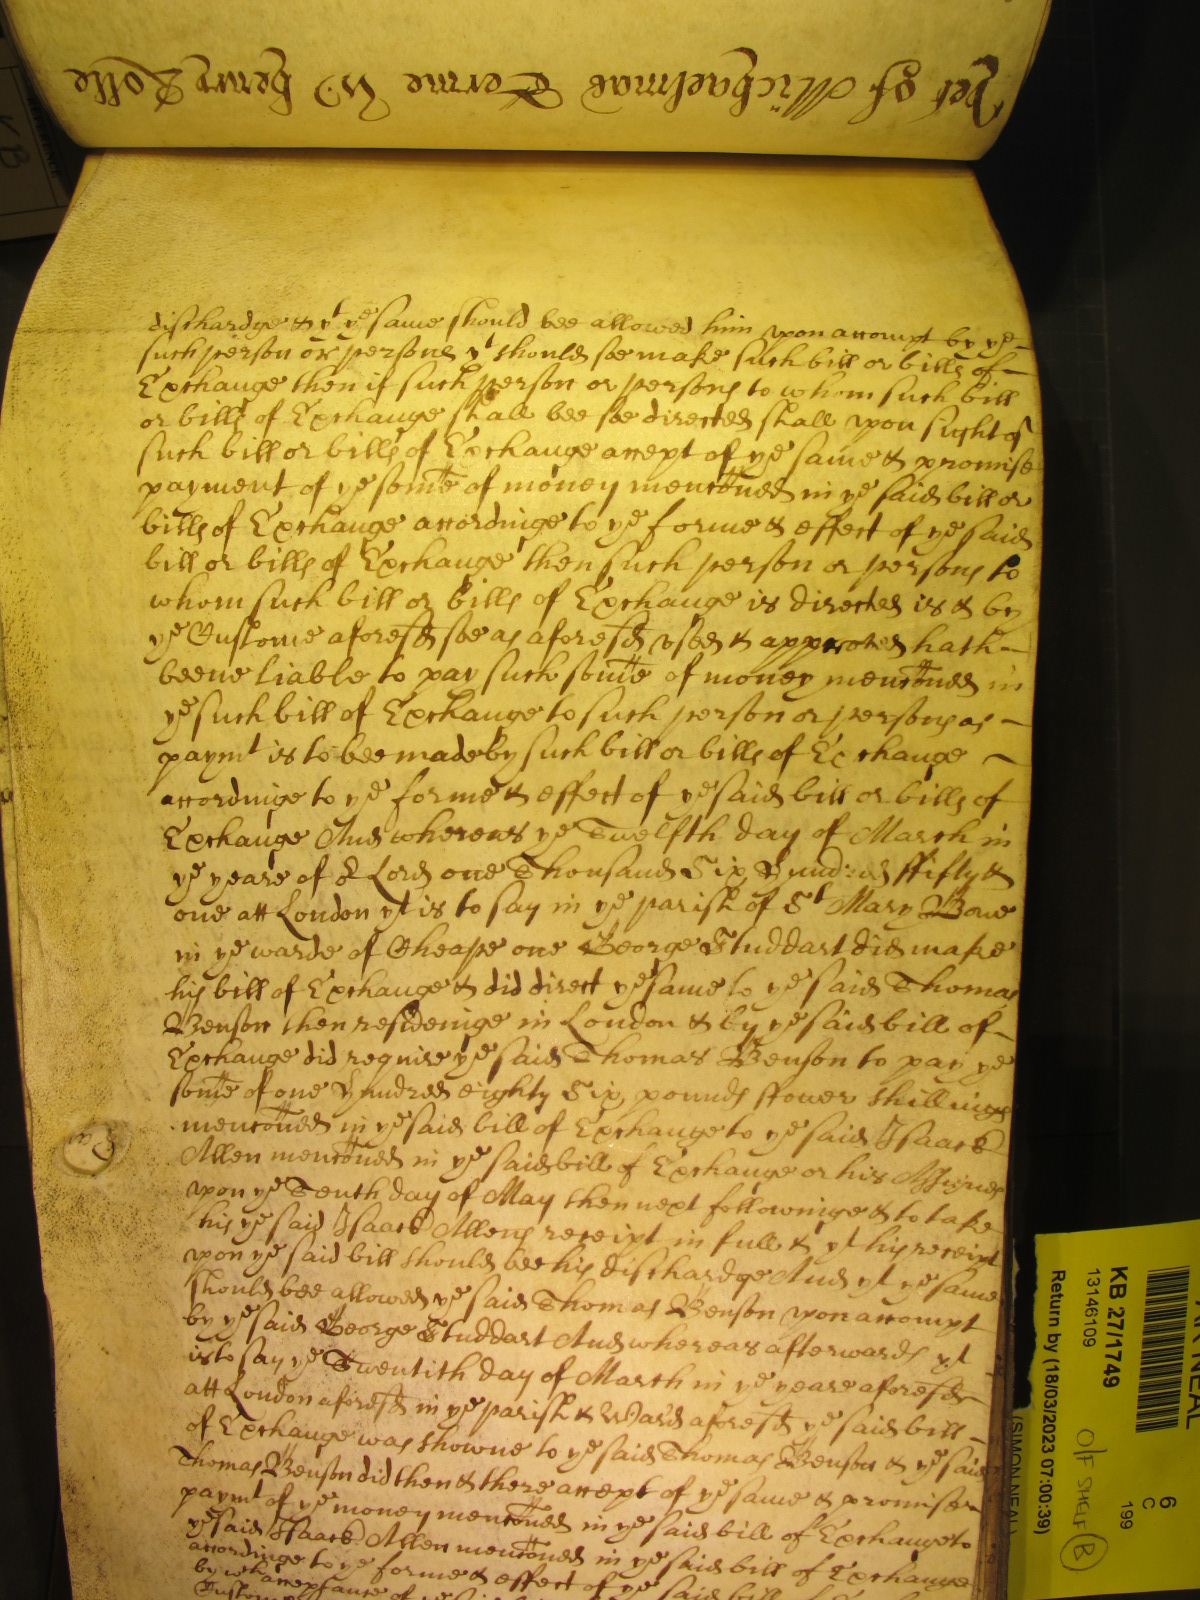 Yet of Michaelmas Terme W: henry Rolle
dischardge & yt ye same should bee allowed him upon accompt by ye
such person or persons yt should soe make such bill or bills of
Exchange then if such person or persons to whom such bill
or bills of Exchange shall bee soe directed shall upon sight of
such bill or bills of Exchange accept of ye same & promise
payment of ye some of money menconed in ye said bill or
bills of Exchange accordinge to ye forme & effect of ye said
bill or bills of Exchange then such person or persons to
whom such bill or bills of Exchange is directed is & by
ye Custome aforesd soe as aforesd used & approved hath
beene liable to pay such some of money menconed in
ye such bill of Exchange to such person or persons as
paymt is to bee made by such bill or bills of Exchange
accordinge to ye forme & effect of ye said bill or bills of
Exchange And whereas ye Twelfth day of March in
ye yeare of or Lord one Thousand Six Hundred ffifty &
one att London yt is to say in ye parish of St Mary Bowe
in ye warde of Cheape one George Studdart did make
his bill of Exchange & did direct ye same to ye said Thomas
Benson then resideinge in London & by ye said bill of
Exchange did require ye said Thomas Benson to pay ye
some of one Hundred eighty Six pounds ffower shillings
menconed in ye said bill of Exchange to ye said Isaack
Allen menconed in ye said bill of Exchange or his Assignes
upon ye Tenth day of May then next followinge & to take
his ye said Isaack Allens receipt in full & yt his receipt
upon ye said bill should bee his dischardge And yt ye same
should bee allowed ye said Thomas Benson upon accompt
by ye said George Studdart And whereas afterwards yt
is to say ye Twentith day of March in ye yeare aforesd
att London aforesd in ye parish & Ward aforesd ye said bill
of Exchange was showne to ye said Thomas Benson & ye said
Thomas Benson did then & there accept of ye same & promise
paymt of ye money menconed in ye said bill of Exchange to
ye said Isaack Allen menconed in ye said bill of Exchange
accordinge to ye forme & effect of ye said bill of Exchange
by wch acceptance of ye said bill
Custome
KB 27/1749
13146109
Return by (18/03/2023 07:00:39)
(SIMON NEAL)
O/F SHELF B
6
C
199